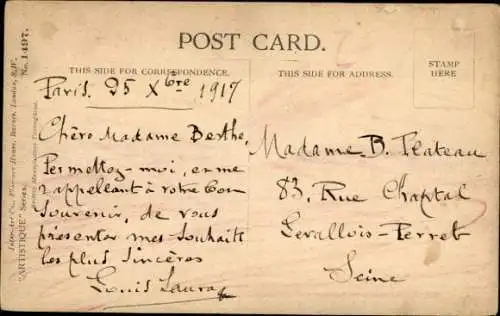 POST CARD.
THIS SIDE FOR CORRESPONDENCE.
THIS SIDE FOR ADDRESS.
STAMP
HERE
Paris. 25 Xbre 1917
Chère Madame Berthe,
Permettez-moi, en me
rappellant à votre bon
souvenir, de vous
présenter mes souhaits
les plus sincères
Louis
Madame B. Plateau
83, Rue Chaptal
Levallois-Perret
Seine
"ARTISTIQUE" Series.
No. 1497.